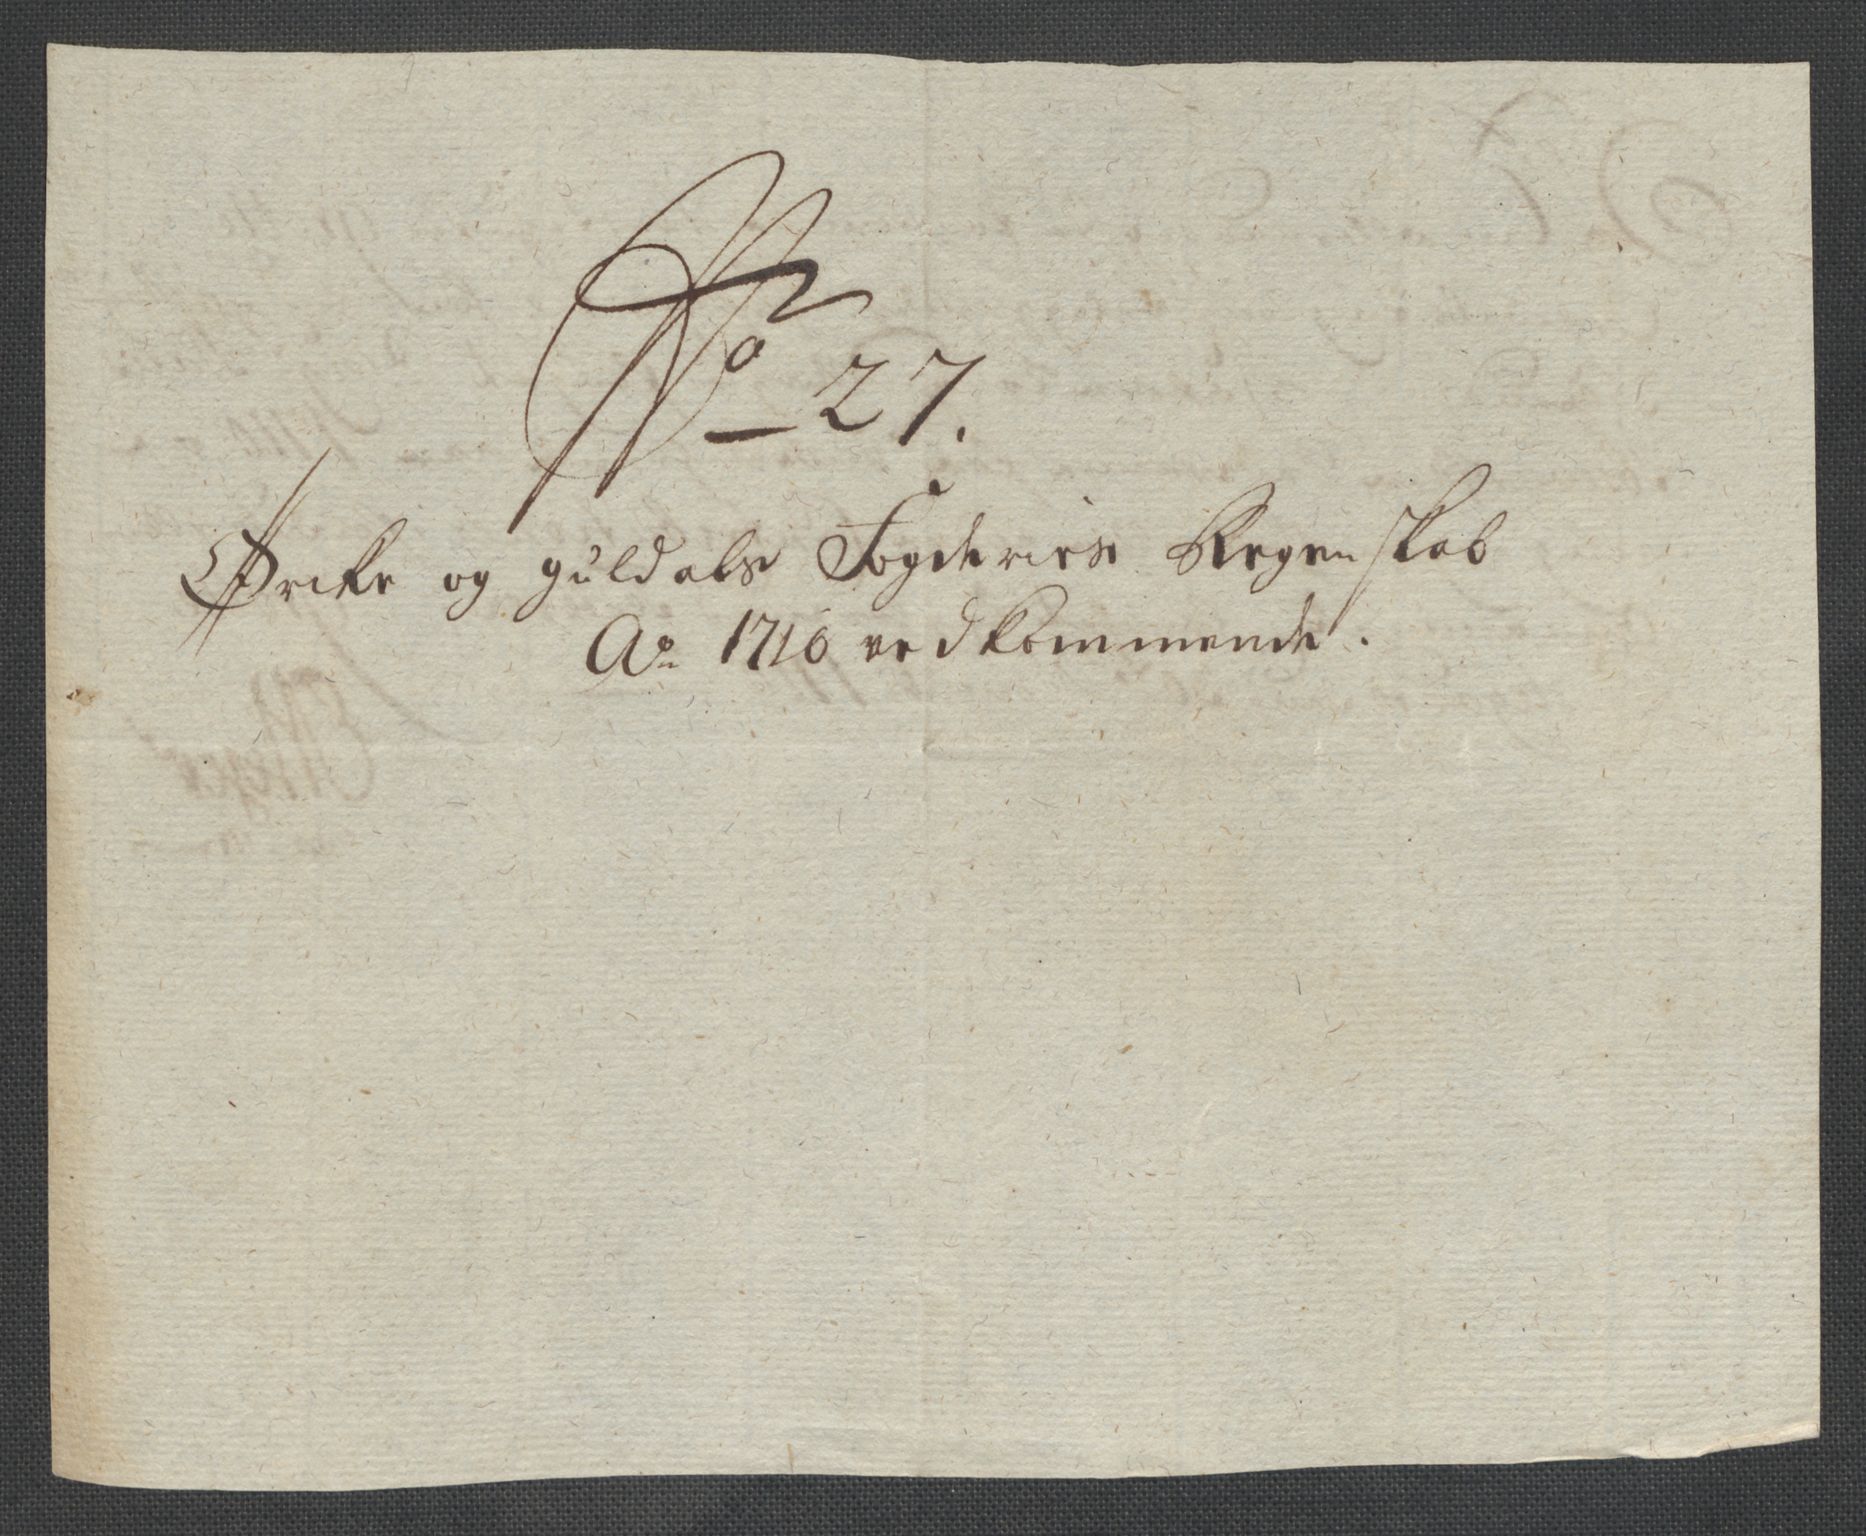 No 27.
Ørcke og guldals Fogderies Regenskab
Ao 1710 vedkommende.